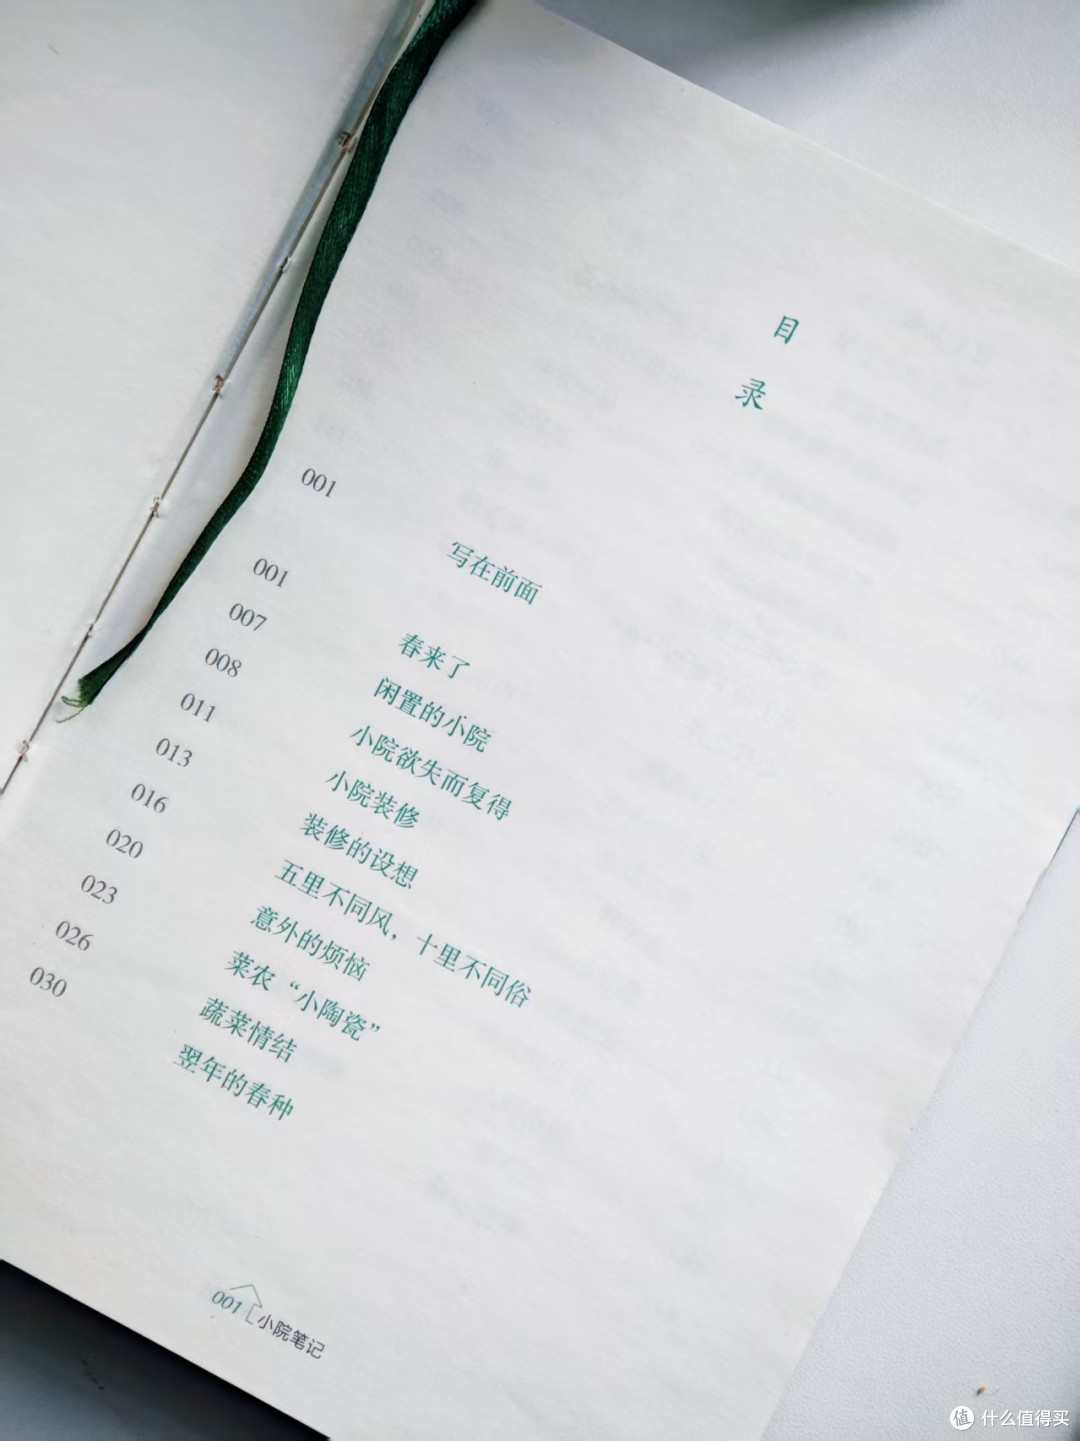 目
录
001 写在前面
001 春来了
007 闲置的小院
008 小院欲失而复得
011 小院装修
013 装修的设想
016 五里不同风，十里不同俗
020 意外的烦恼
023 菜农“小陶瓷”
026 蔬菜情结
030 翌年的春种
001 小院笔记
值 什么值得买